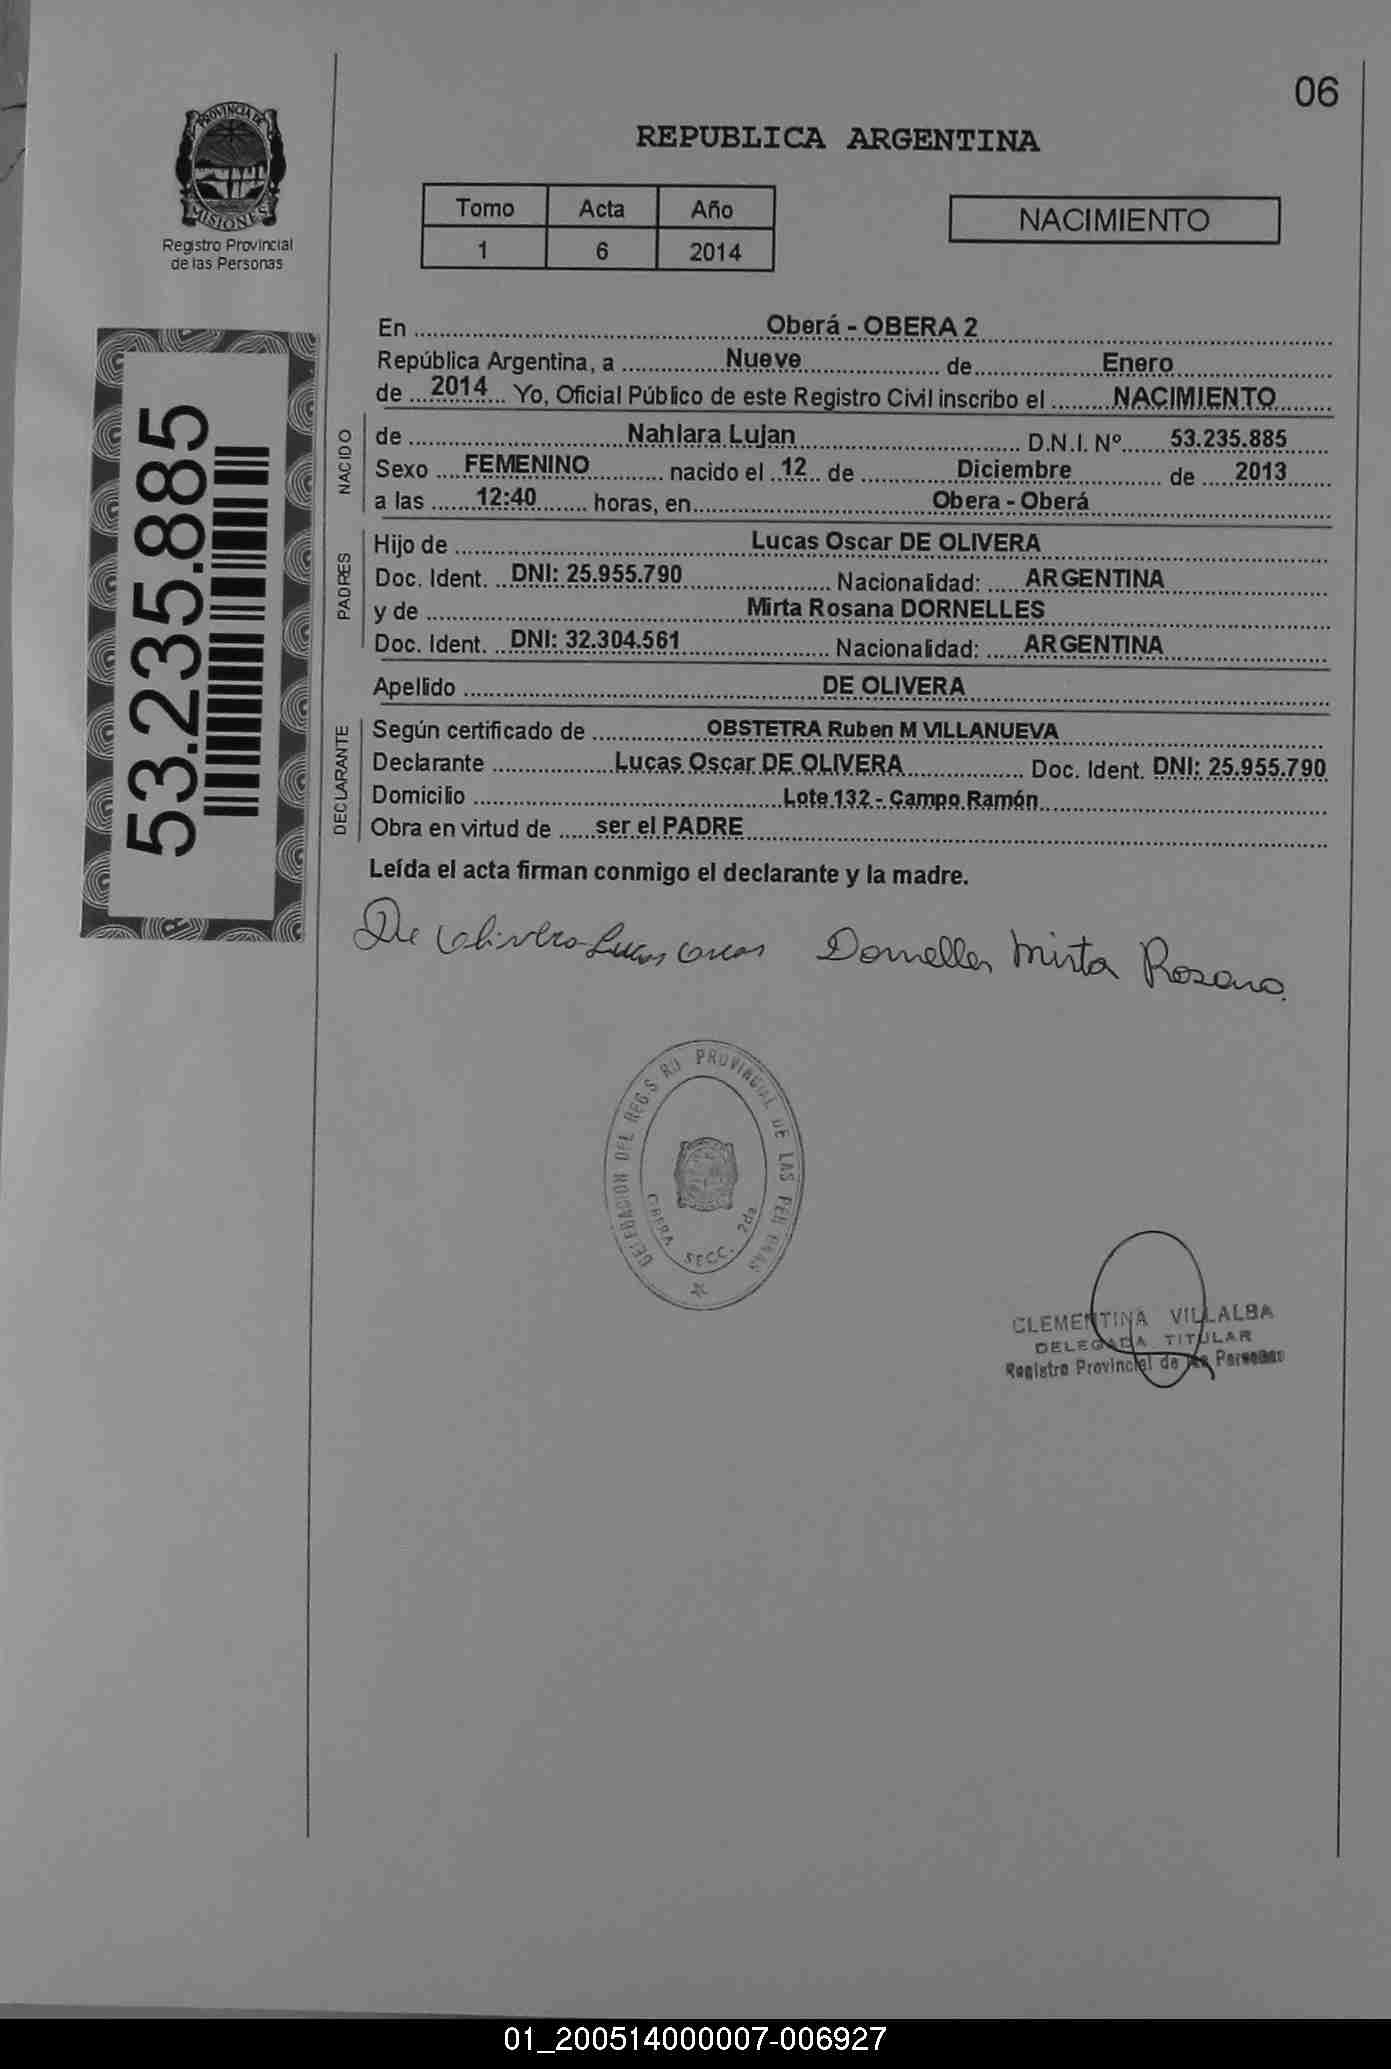 06
PROVINCIA DE
MISIONES
Registro Provincial
de las Personas
REPUBLICA ARGENTINA
Tomo Acta Año
1 6 2014
NACIMIENTO
53.235.885
En Oberá - OBERA 2
República Argentina, a Nueve de Enero
de 2014 Yo, Oficial Público de este Registro Civil inscribo el NACIMIENTO
NACIDO
de Nahiara Lujan D.N.I. Nº 53.235.885
Sexo FEMENINO nacido el 12 de Diciembre de 2013
a las 12:40 horas, en Obera - Oberá
PADRES
Hijo de Lucas Oscar DE OLIVERA
Doc. Ident. DNI: 25.955.790 Nacionalidad: ARGENTINA
y de Mirta Rosana DORNELLES
Doc. Ident. DNI: 32.304.561 Nacionalidad: ARGENTINA
Apellido DE OLIVERA
DECLARANTE
Según certificado de OBSTETRA Ruben M VILLANUEVA
Declarante Lucas Oscar DE OLIVERA Doc. Ident. DNI: 25.955.790
Domicilio Lote 132 - Campo Ramón
Obra en virtud de ser el PADRE
Leída el acta firman conmigo el declarante y la madre.
De Olivera Lucas Oscar Dornelles Mirta Rosana.
DELEGACION DEL REGISRO PROVINCIAL DE LAS PERSONAS
OBERA SECC. 2da
CLEMENTINA VILLALBA
DELEGADA TITULAR
Registro Provincial de las Personas
01_200514000007-006927